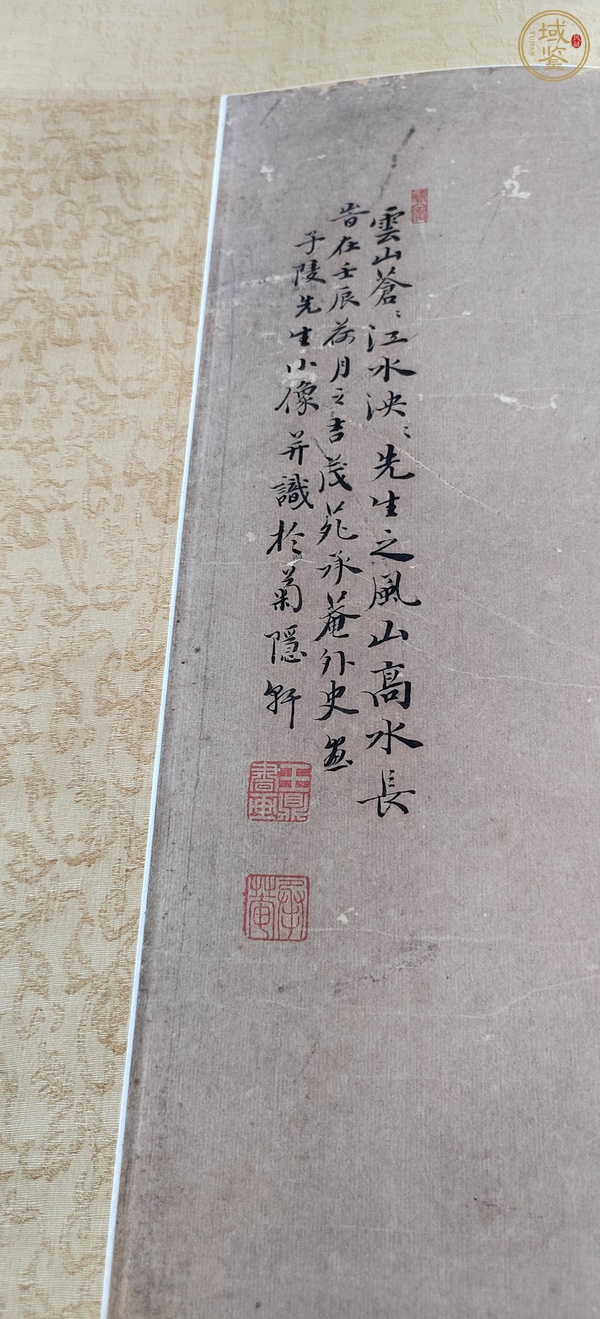 雲山蒼〻江水泱〻先生之風山高水長
旹在壬辰荷月之吉茂苑承菴外史畫
子陵先生小像并識於菊隱軒
王鼎書畫
承菴
域鑒